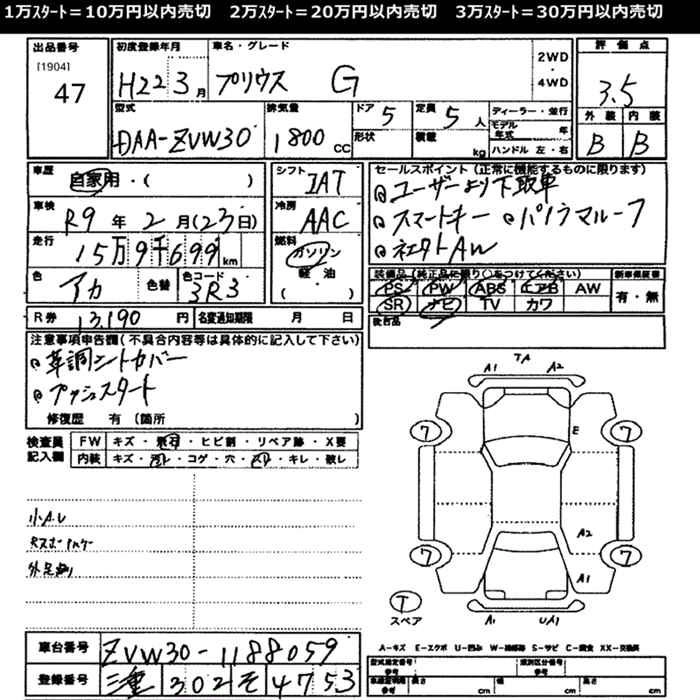 1万ｽﾀｰﾄ＝10万円以内売切　2万ｽﾀｰﾄ＝20万円以内売切　3万ｽﾀｰﾄ＝30万円以内売切
出品番号 初度登録年月 車名・グレード 評価点
[1904]
47 H22 3月 プリウス G 2WD・4WD 3.5
型式 排気量 ドア 5 定員 5人 ディーラー・並行 外装 内装
DAA-ZVW30 1800cc 形状 積載 kg モデル年式 年 B B
ハンドル 左・右
車歴 自家用・( ) シフト IAT
車検 R9年2月(23日) 冷房 AAC
走行 15万9千699km 燃料 ガソリン 軽油 ( )
色 アカ 色替 色コード 3R3
R券 13,190円 名変通知期限 月 日
セールスポイント(正常に機能するものに限ります)
ユーザーより下取車
スマートキー パノラマルーフ
社外AW
装備品(純正品に限り○をつけてください) 新車保証書
PS PW ABS エアB AW 有・無
SR ナビ TV カワ
後日品
注意事項申告欄(不具合内容等は具体的に記入して下さい)
革調シートカバー
プッシュスタート
修復歴 有 (箇所 )
検査員記入欄 FW キズ・飛石・ヒビ割・リペア跡・X要
内装 キズ・汚レ・コゲ・穴・スリ・キレ・破レ
小A,U
外足廻り
A1 TA A2
7 E 7
A2
7 7
A1
T
スペア A1 UA1
A－キズ E－エクボ U－凹ム W－補修跡 S－サビ C－腐食 XX－交換済
車台番号 ZVW30-1188059
登録番号 三重 302 そ 4753
型式指定番号 参考 類別区分番号 参考
長さ cm 幅 cm 高さ cm